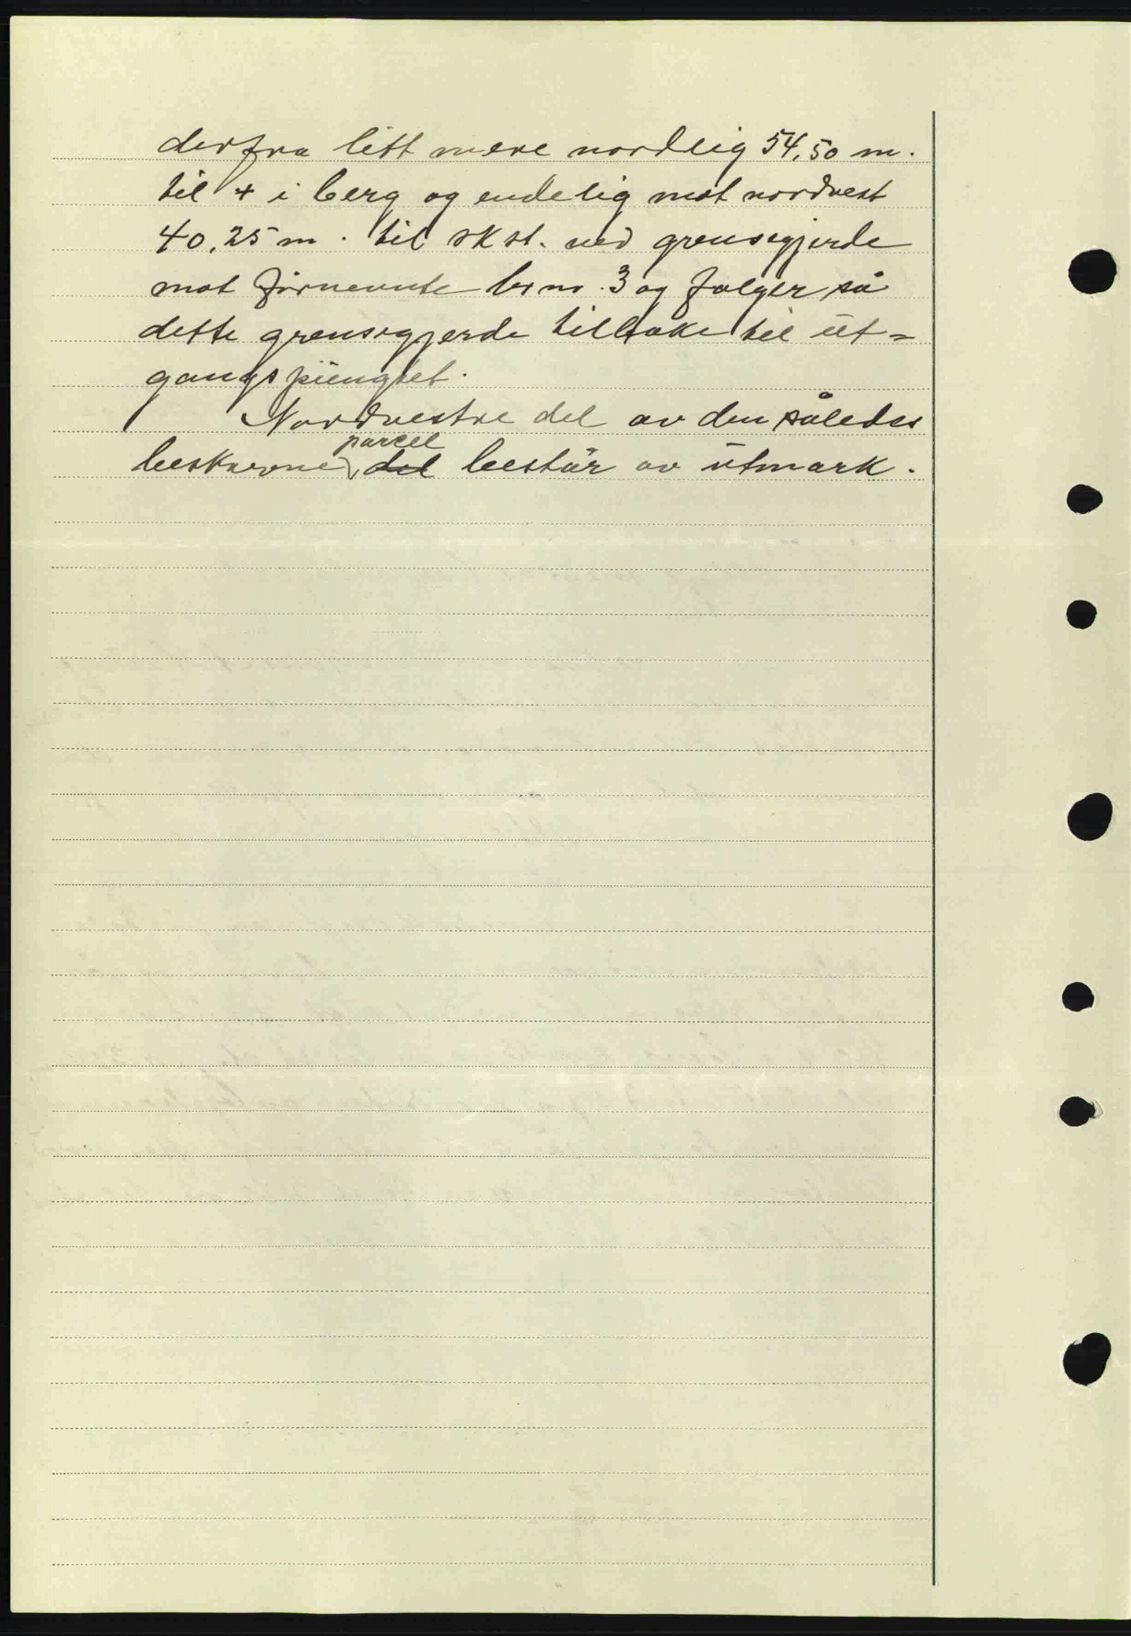 derfra litt mere nordlig 54,50 m.
til + i berg og endelig mot nordvest
40,25 m. til sk st. ved grensegjerde
mot førnevnte br nr. 3 og følger så
dette grensegjerde tilbake til ut=
gangspungtet.
Nordvestre del av den således
parcel
beskrevne del består av utmark.